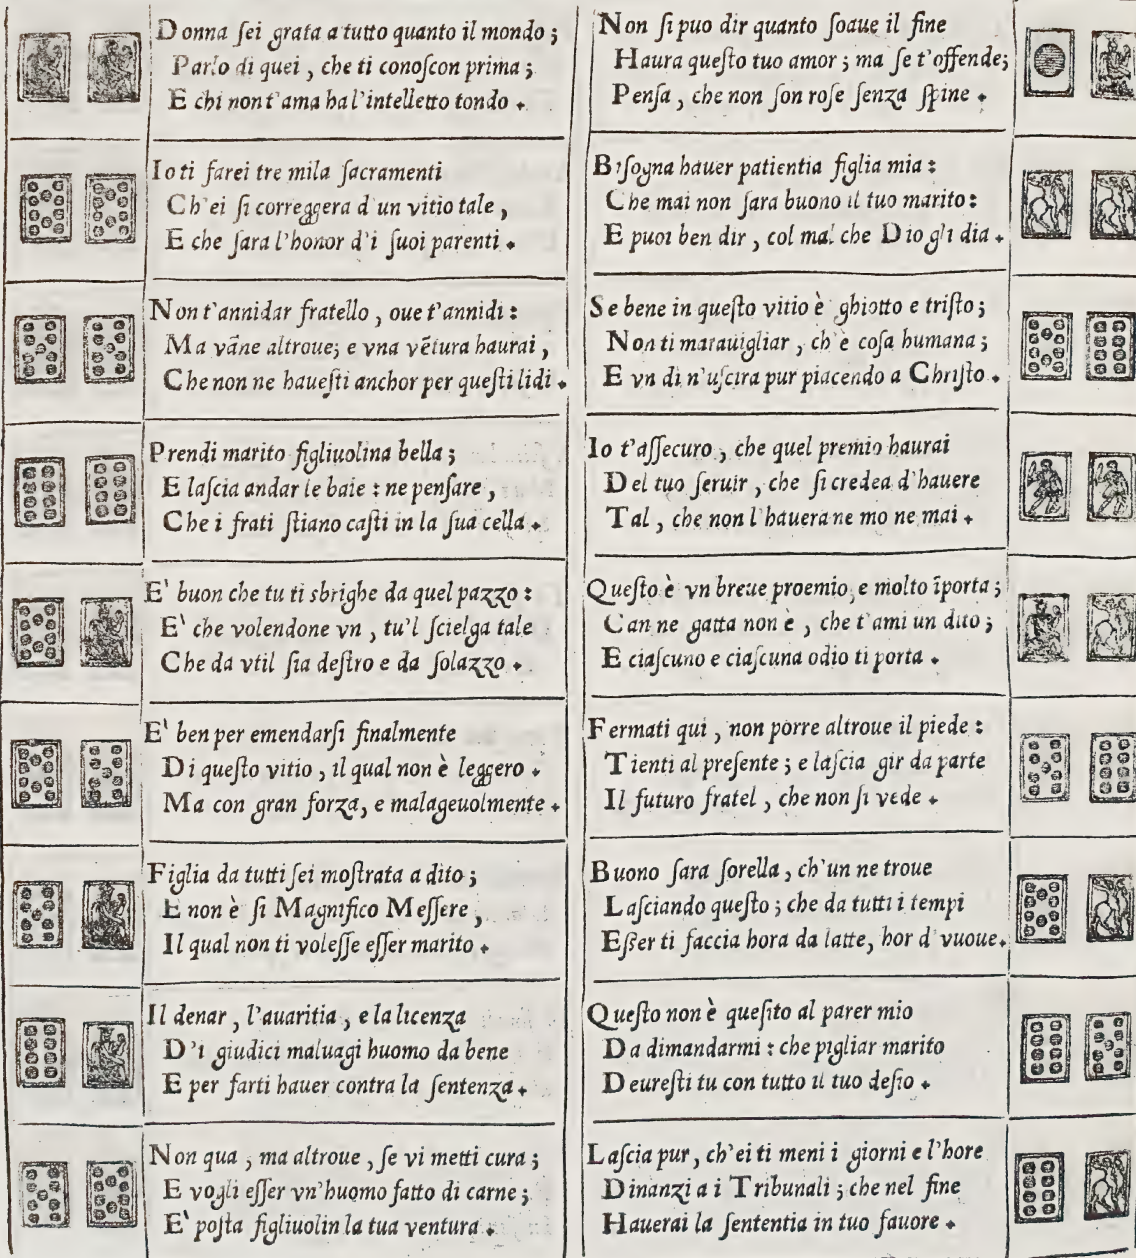 Donna ſei grata a tutto quanto il mondo ;
Parlo di quei , che ti conoſcon prima ;
E chi non t'ama ha l'intelletto tondo .
Io ti farei tre mila ſacramenti
Ch'ei ſi correggera d un vitio tale ,
E che ſara l'honor d'i ſuoi parenti .
Non t'annidar fratello , oue t'annidi :
Ma vāne altroue; e vna vētura haurai ,
Che non ne haueſti anchor per queſti lidi .
Prendi marito figliuolina bella ;
E laſcia andar le baie : ne penſare ,
Che i frati ſtiano caſti in la ſua cella .
E' buon che tu ti sbrighe da quel pazzo :
E' che volendone vn , tu'l ſcielga tale
Che da vtil ſia deſtro e da ſolazzo .
E' ben per emendarſi finalmente
Di queſto vitio , il qual non è leggero .
Ma con gran forza, e malageuolmente .
Figlia da tutti ſei moſtrata a dito ;
E non è ſi Magnifico Meſſere ,
Il qual non ti voleſſe eſſer marito .
Il denar , l'auaritia , e la licenza
D'i giudici maluagi huomo da bene
E per farti hauer contra la ſentenza .
Non qua , ma altroue , ſe vi metti cura ;
E vogli eſſer vn'huomo fatto di carne ;
E' poſta figliuolin la tua ventura .
Non ſi puo dir quanto ſoaue il fine
Haura queſto tuo amor ; ma ſe t'offende;
Penſa , che non ſon roſe ſenza ſpine .
Biſogna hauer patientia figlia mia :
Che mai non ſara buono il tuo marito :
E puoi ben dir , col mal che Dio gli dia .
Se bene in queſto vitio è ghiotto e triſto ;
Non ti marauigliar , ch'è coſa humana ;
E vn di n'uſcira pur piacendo a Chriſto .
Io t'aſſecuro , che quel premio haurai
Del tuo ſeruir , che ſi credea d'hauere
Tal , che non l'hauera ne mo ne mai .
Queſto è vn breue proemio, e molto īporta ;
Can ne gatta non è , che t'ami un dito ;
E ciaſcuno e ciaſcuna odio ti porta .
Fermati qui , non porre altroue il piede :
Tienti al preſente ; e laſcia gir da parte
Il futuro fratel , che non ſi vede .
Buono ſara ſorella , ch'un ne troue
Laſciando queſto ; che da tutti i tempi
Eſſer ti faccia hora da latte, hor d'vuoue.
Queſto non è queſito al parer mio
Da dimandarmi : che pigliar marito
Deureſti tu con tutto il tuo deſio .
Laſcia pur , ch'ei ti meni i giorni e l'hore
Dinanzi a i Tribunali ; che nel fine
Hauerai la ſententia in tuo fauore .